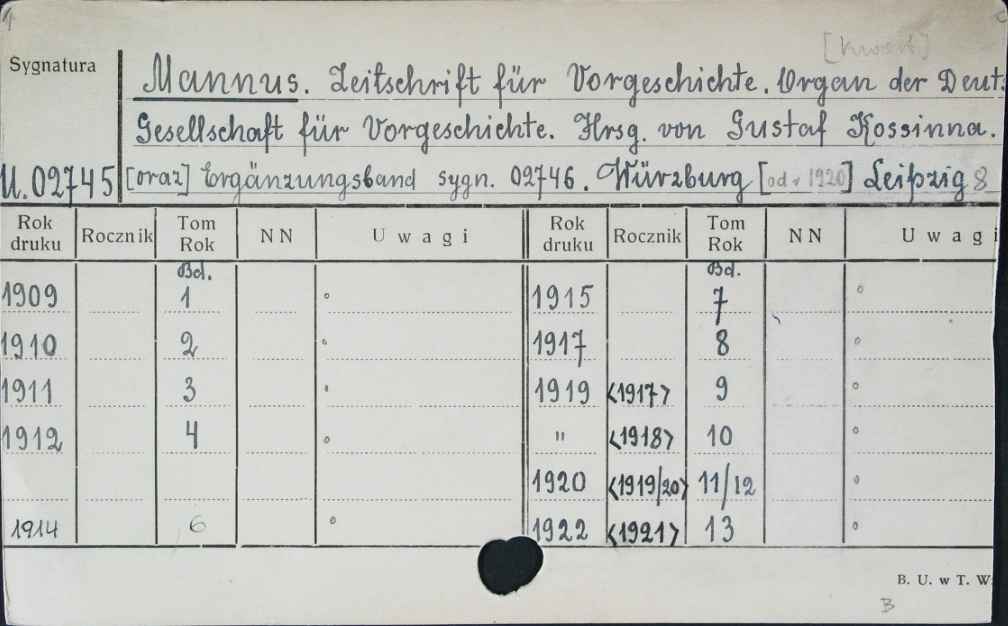 1
[kwart]
Sygnatura
Mannus. Zeitschrift für Vorgeschichte. Organ der Deut.
Gesellschaft für Vorgeschichte. Hrsg. von Gustaf Kossinna.
U.02745 [oraz] Ergänzungsband sygn. 02746. Würzburg [od r 1920] Leipzig 8
Rok druku Rocznik Tom Rok NN Uwagi Rok druku Rocznik Tom Rok NN Uwagi
Bd. Bd.
1909 1 1915 7
1910 2 1917 8
1911 3 1919 <1917> 9
1912 4 " <1918> 10
1920 <1919/20> 11/12
1914 6 1922 <1921> 13
B. U. w T. W.
B